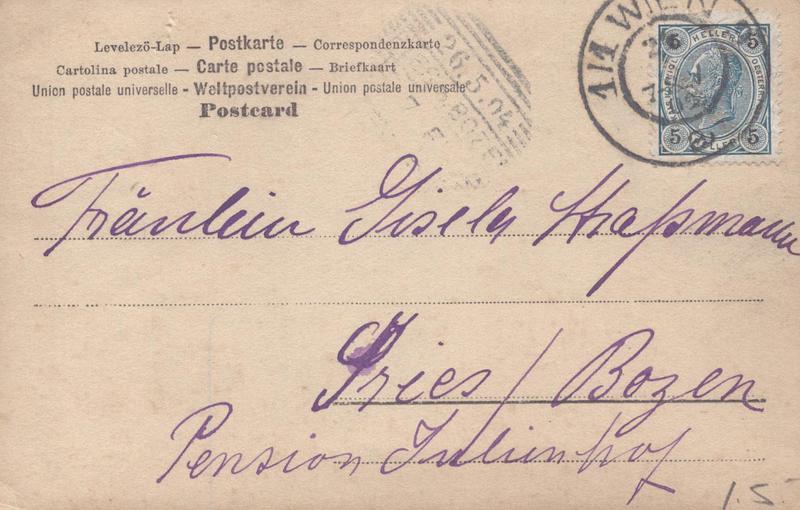 Levelező-Lap — Postkarte — Correspondenzkarte
Cartolina postale — Carte postale — Briefkaart
Union postale universelle - Weltpostverein - Union postale universale
Postcard
26.5.04
1/1 WIEN
5 HELLER 5
5 HELLER 5
Fräulein Gisela Straßmann
Gries / Bozen
Pension Julienhof
1.5.